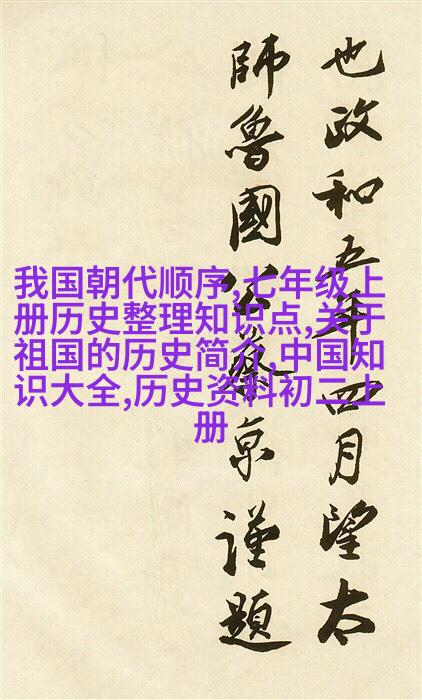 也政和五年四月望太
師魯國公蔡京謹題
我国朝代顺序,七年级上
册历史整理知识点,关于
祖国的历史简介,中国知
识大全,历史资料初二上
册